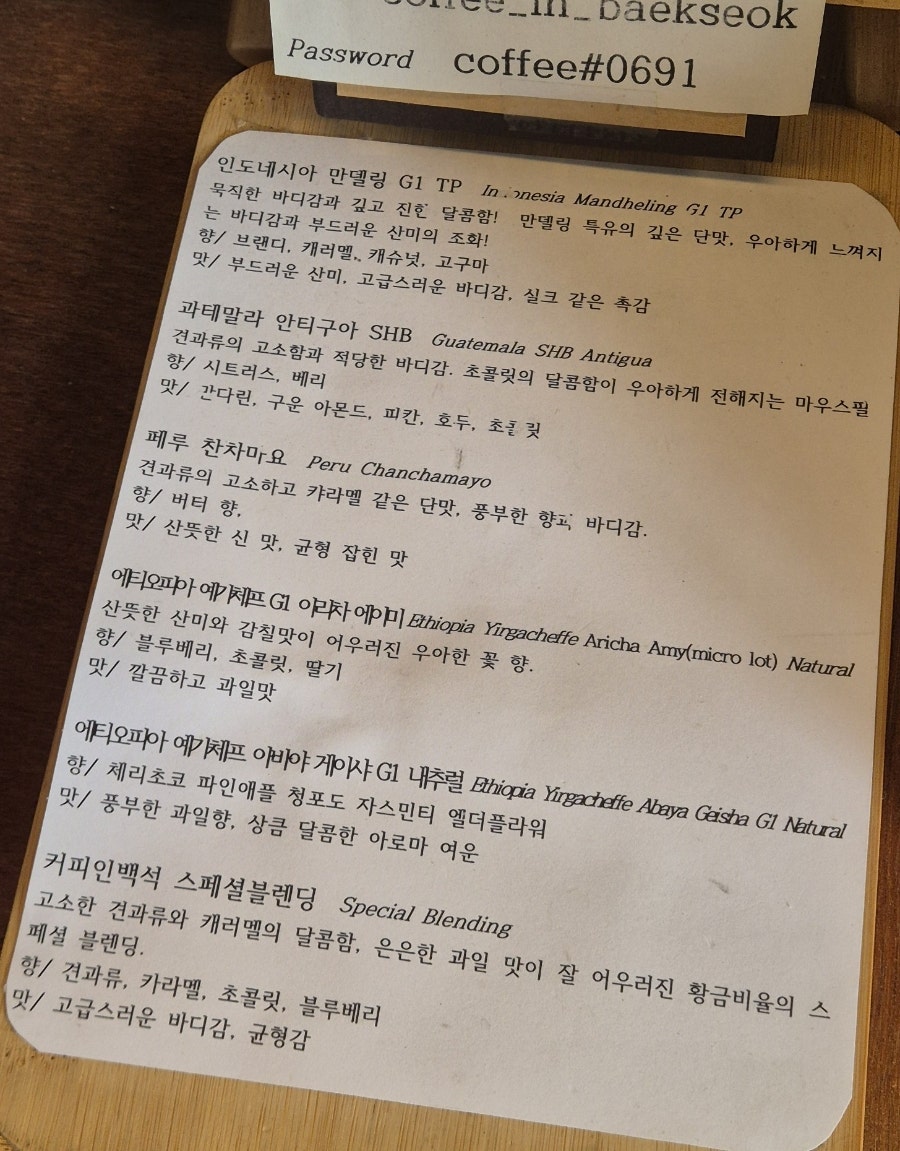 coffee_in_baekseok
Password coffee#0691
인도네시아 만델링 G1 TP Indonesia Mandheling G1 TP
묵직한 바디감과 깊고 진한 달콤함! 만델링 특유의 깊은 단맛, 우아하게 느껴지
는 바디감과 부드러운 산미의 조화!
향/ 브랜디, 캐러멜, 캐슈넛, 고구마
맛/ 부드러운 산미, 고급스러운 바디감, 실크 같은 촉감
과테말라 안티구아 SHB Guatemala SHB Antigua
견과류의 고소함과 적당한 바디감. 초콜릿의 달콤함이 우아하게 전해지는 마우스필
향/ 시트러스, 베리
맛/ 만다린, 구운 아몬드, 피칸, 호두, 초콜릿
페루 찬차마요 Peru Chanchamayo
견과류의 고소하고 캬라멜 같은 단맛, 풍부한 향과 바디감.
향/ 버터 향,
맛/ 산뜻한 신 맛, 균형 잡힌 맛
에티오피아 예가체프 G1 아리차 에이미 Ethiopia Yirgacheffe Aricha Amy(micro lot) Natural
산뜻한 산미와 감칠맛이 어우러진 우아한 꽃 향.
향/ 블루베리, 초콜릿, 딸기
맛/ 깔끔하고 과일맛
에티오피아 예가체프 아바야 게이샤 G1 내추럴 Ethiopia Yirgacheffe Abaya Geisha G1 Natural
향/ 체리초코 파인애플 청포도 자스민티 엘더플라워
맛/ 풍부한 과일향, 상큼 달콤한 아로마 여운
커피인백석 스페셜블렌딩 Special Blending
고소한 견과류와 캐러멜의 달콤함, 은은한 과일 맛이 잘 어우러진 황금비율의 스
페셜 블렌딩.
향/ 견과류, 카라멜, 초콜릿, 블루베리
맛/ 고급스러운 바디감, 균형감